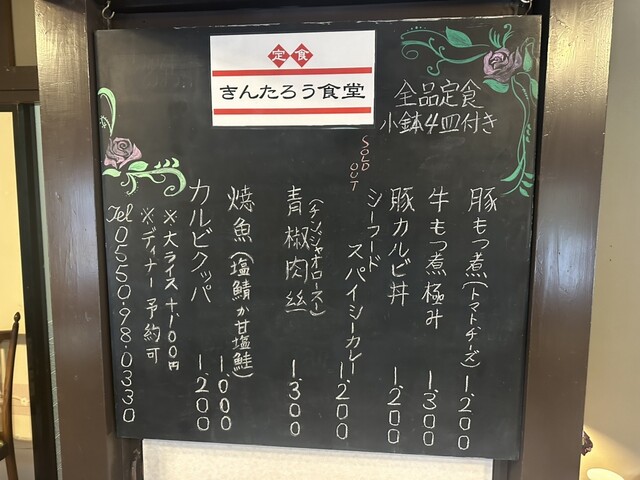 定食
きんたろう食堂
全品定食
小鉢4皿付き
豚もつ煮(トマトチーズ) 1.200
牛もつ煮極み 1.300
豚カルビ丼 1.200
SOLD OUT
シーフード
スパイシーカレー 1.200
青椒肉絲 1.300
(チンジャオロースー)
焼魚(塩鯖か甘塩鮭) 1.000
カルビクッパ 1.200
※大ライス+100円
※ディナー予約可
Tel 0550.98.0330